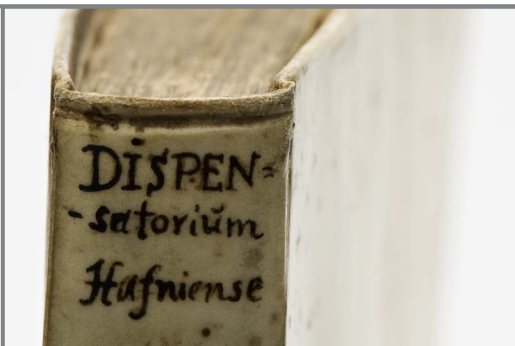 DISPEN=
-satoriŭm
Hafniense